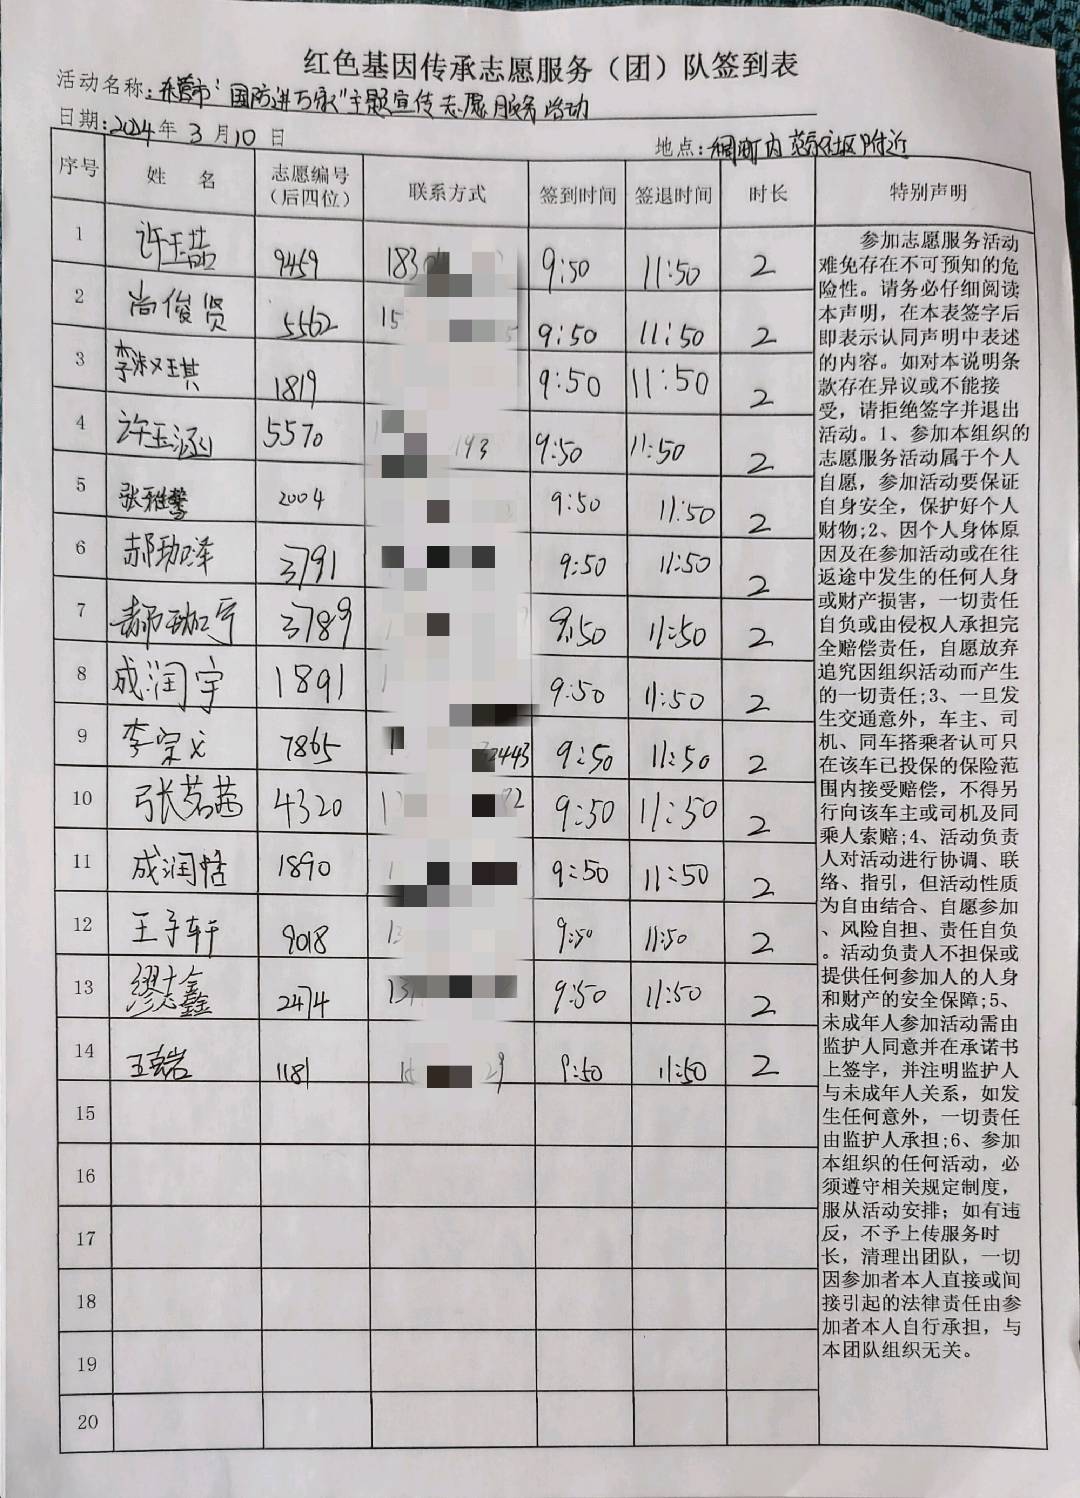 红色基因传承志愿服务（团）队签到表
活动名称：东营市"国防进万家"主题宣传志愿服务活动
日期：2024年3月10日
地点：稠河町内 范家社区附近
序号 姓名 志愿编号（后四位） 联系方式 签到时间 签退时间 时长 特别声明
1 许玉喆 9459 183 9:50 11:50 2
2 尚俊贤 5562 15 9:50 11:50 2
3 李淑琪 1819 9:50 11:50 2
4 许玉涵 5570 193 9:50 11:50 2
5 张雅馨 2004 9:50 11:50 2
6 郝珈泽 3791 9:50 11:50 2
7 郝珈宁 3789 9:50 11:50 2
8 成润宇 1891 1 9:50 11:50 2
9 李宗 7865 2443 9:50 11:50 2
10 张茗茜 4320 9:50 11:50 2
11 成润恬 1890 9:50 11:50 2
12 王子轩 9018 13 9:50 11:50 2
13 缪志鑫 2474 9:50 11:50 2
14 1181 29 9:50 11:50 2
15
16
17
18
19
20
参加志愿服务活动
难免存在不可预知的危
险性。请务必仔细阅读
本声明，在本表签字后
即表示认同声明中表述
的内容。如对本说明条
款存在异议或不能接
受，请拒绝签字并退出
活动。1、参加本组织的
志愿服务活动属于个人
自愿，参加活动要保证
自身安全，保护好个人
财物;2、因个人身体原
因及在参加活动或在往
返途中发生的任何人身
或财产损害，一切责任
自负或由侵权人承担完
全赔偿责任，自愿放弃
追究因组织活动而产生
的一切责任;3、一旦发
生交通意外，车主、司
机、同车搭乘者认可只
在该车已投保的保险范
围内接受赔偿，不得另
行向该车主或司机及同
乘人索赔;4、活动负责
人对活动进行协调、联
络、指引，但活动性质
为自由结合、自愿参加
、风险自担、责任自负
。活动负责人不担保或
提供任何参加人的人身
和财产的安全保障;5、
未成年人参加活动需由
监护人同意并在承诺书
上签字，并注明监护人
与未成年人关系，如发
生任何意外，一切责任
由监护人承担;6、参加
本组织的任何活动，必
须遵守相关规定制度，
服从活动安排；如有违
反，不予上传服务时
长，清理出团队，一切
因参加者本人直接或间
接引起的法律责任由参
加者本人自行承担，与
本团队组织无关。